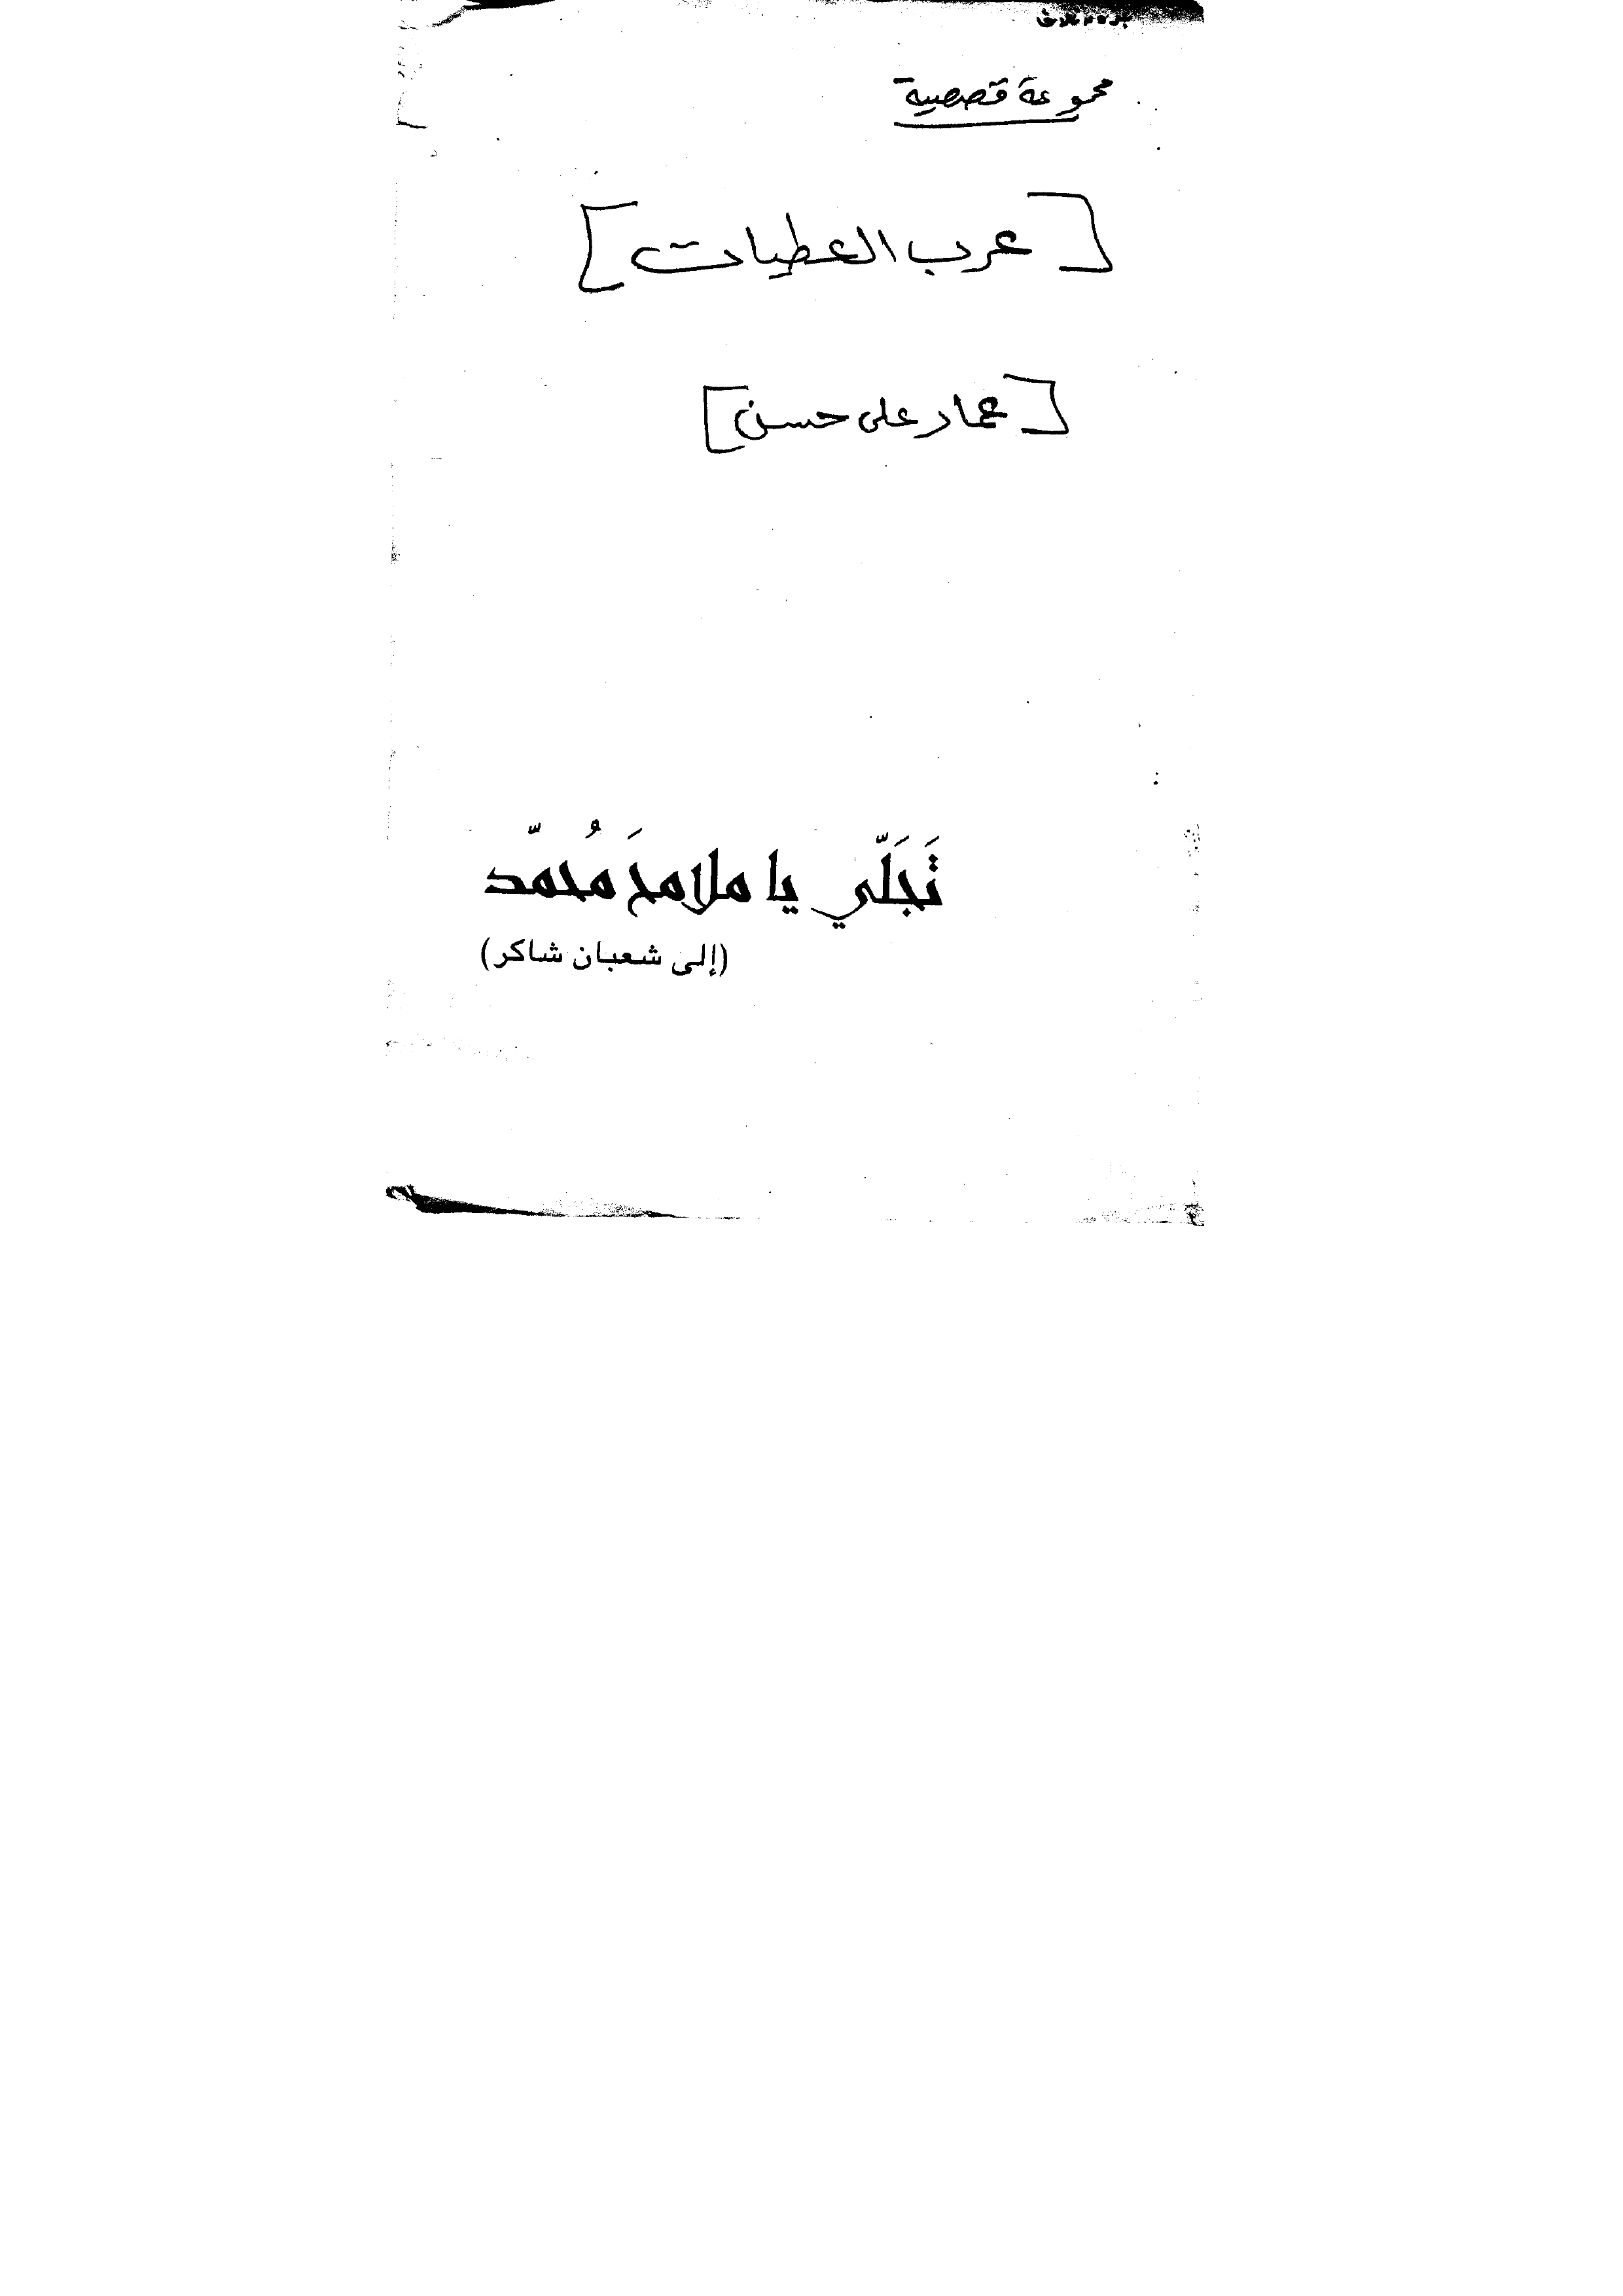 مجموعة قصصية
[عرب العطيات]
[عمار على حسن]
تَجَلّي يا ملامحَ مُحمّد
(إلى شعبان شاكر)